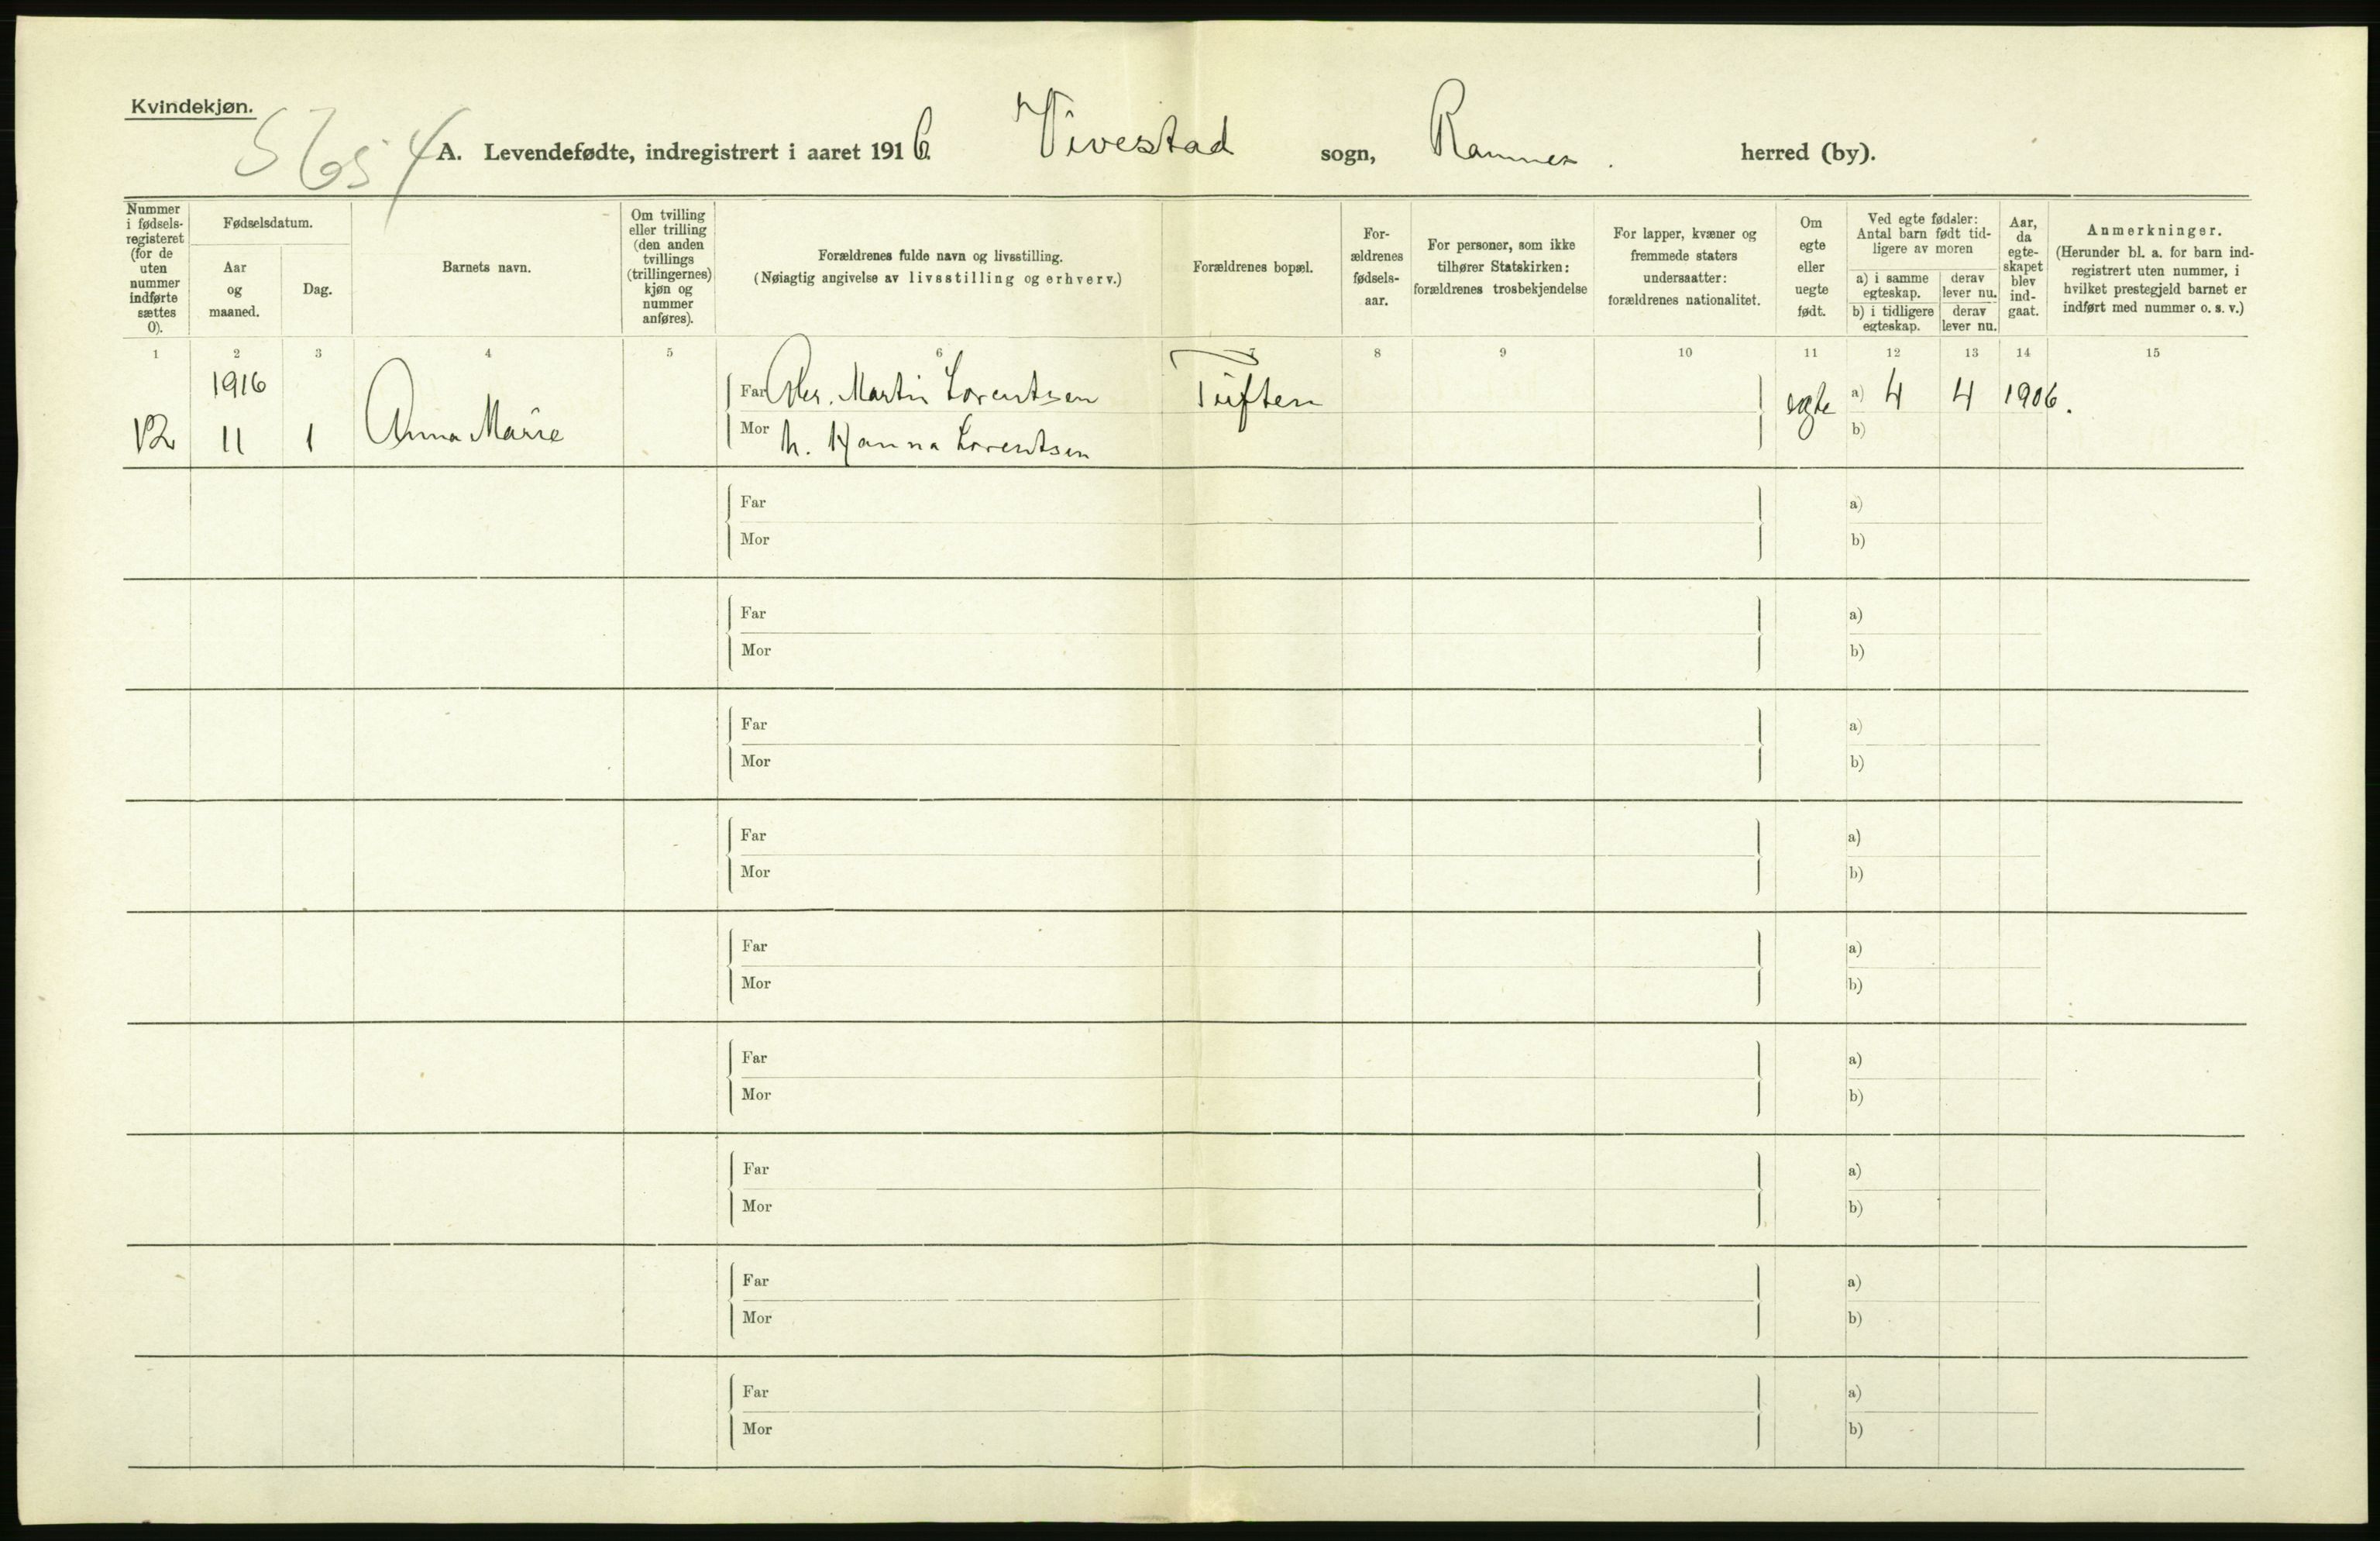 Kvindekjøn.
A. Levendefødte, indregistrert i aaret 1916. Vivestad sogn, Ramnes. herred (by).
Nummer i fødselsregisteret (for de uten nummer indførte sættes 0).
Fødselsdatum.
Aar og maaned.
Dag.
Barnets navn.
Om tvilling eller trilling (den anden tvillings (trillingernes) kjøn og nummer anføres).
Forældrenes fulde navn og livsstilling.
(Nøiagtig angivelse av livsstilling og erhverv.)
Forældrenes bopæl.
Forældrenes fødselsaar.
For personer, som ikke tilhører Statskirken: forældrenes trosbekjendelse
For lapper, kvæner og fremmede staters undersaatter: forældrenes nationalitet.
Om egte eller uegte født.
Ved egte fødsler: Antal barn født tidligere av moren
a) i samme egteskap.
derav lever nu.
b) i tidligere egteskap.
derav lever nu.
Aar, da egteskapet blev indgaat.
Anmerkninger.
(Herunder bl. a. for barn indregistrert uten nummer, i hvilket prestegjeld barnet er indført med nummer o. s. v.)
1 2 3 4 5 6 7 8 9 10 11 12 13 14 15
1916
12 11 1 Anna Marie
Far Martin Lorentsen Tuften egte a) 4 4 1906.
Mor h. Hanna Lorentsen b)
Far a)
Mor b)
Far a)
Mor b)
Far a)
Mor b)
Far a)
Mor b)
Far a)
Mor b)
Far a)
Mor b)
Far a)
Mor b)
Far a)
Mor b)
Far a)
Mor b)